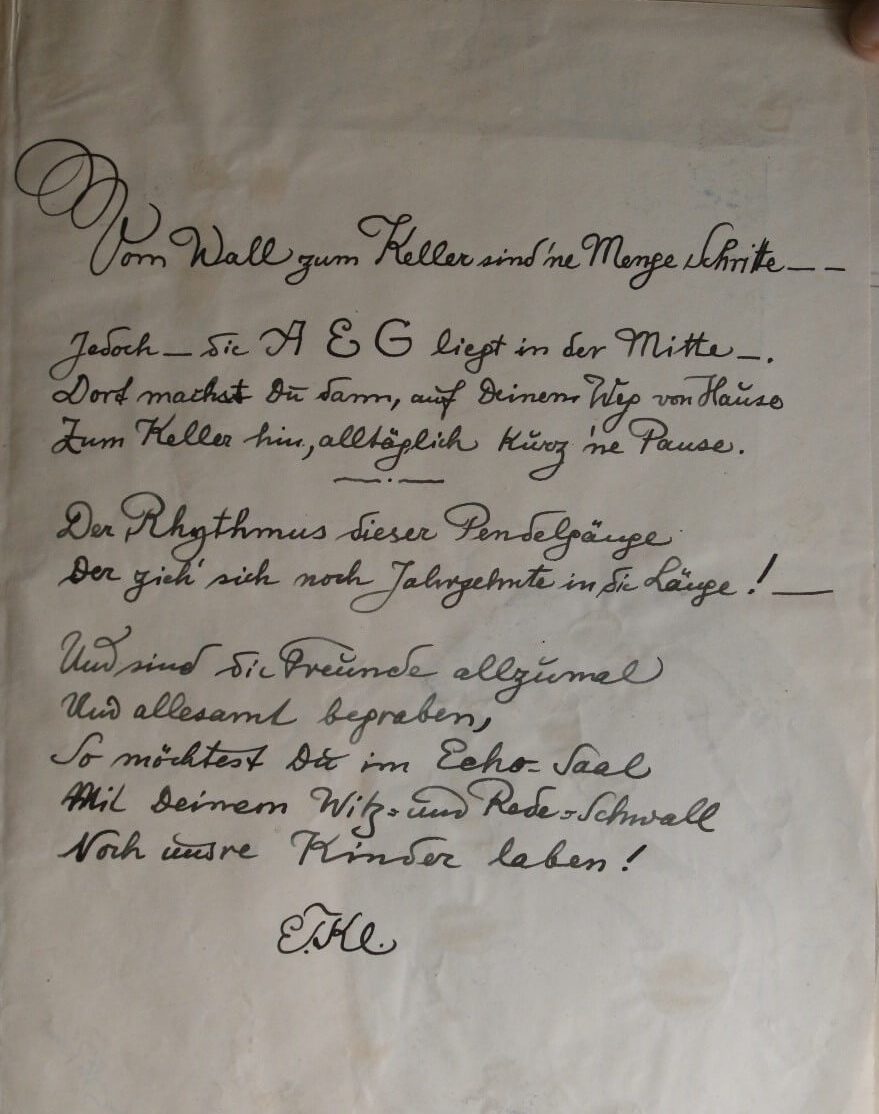 Vom Wall zum Keller sind 'ne Menge Schritte – –
Jedoch – die A E G liegt in der Mitte –.
Dort machst Du dann, auf Deinem Weg von Hause
Zum Keller hin, alltäglich kurz 'ne Pause.
Der Rhythmus dieser Pendelgänge
Der zieh' sich noch Jahrzehnte in die Länge! —
Und sind die Freunde allzumal
Und allesamt begraben,
So möchtest Du im Echo-Saal
Mit Deinem Witz- und Rede-Schwall
Noch unsre Kinder laben!
E. Kl.